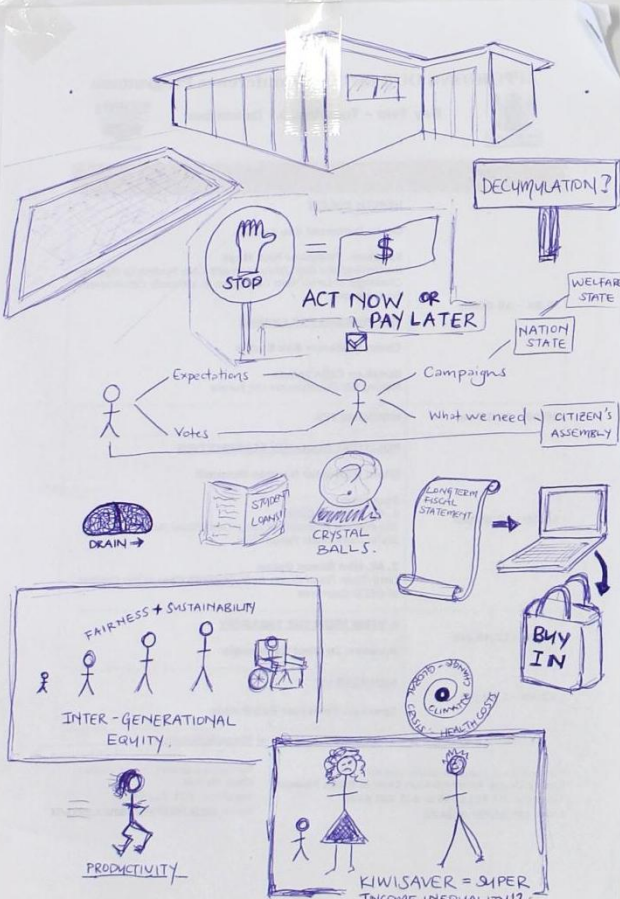 DECUMULATION?
STOP
=
$
ACT NOW OR
PAY LATER
WELFARE
STATE
NATION
STATE
Expectations
Campaigns
Votes
What we need
CITIZEN'S
ASSEMBLY
STUDENT
LOANS!
?
CRYSTAL
BALLS.
LONG TERM
FISCAL
STATEMENT
DRAIN →
BUY
IN
FAIRNESS + SUSTAINABILITY
INTER-GENERATIONAL
EQUITY.
CLIMATE
CHANGE - GLOBAL
CRISIS - HEALTH COSTS
PRODUCTIVITY
KIWISAVER = SUPER
INCOME INEQUALITY!?